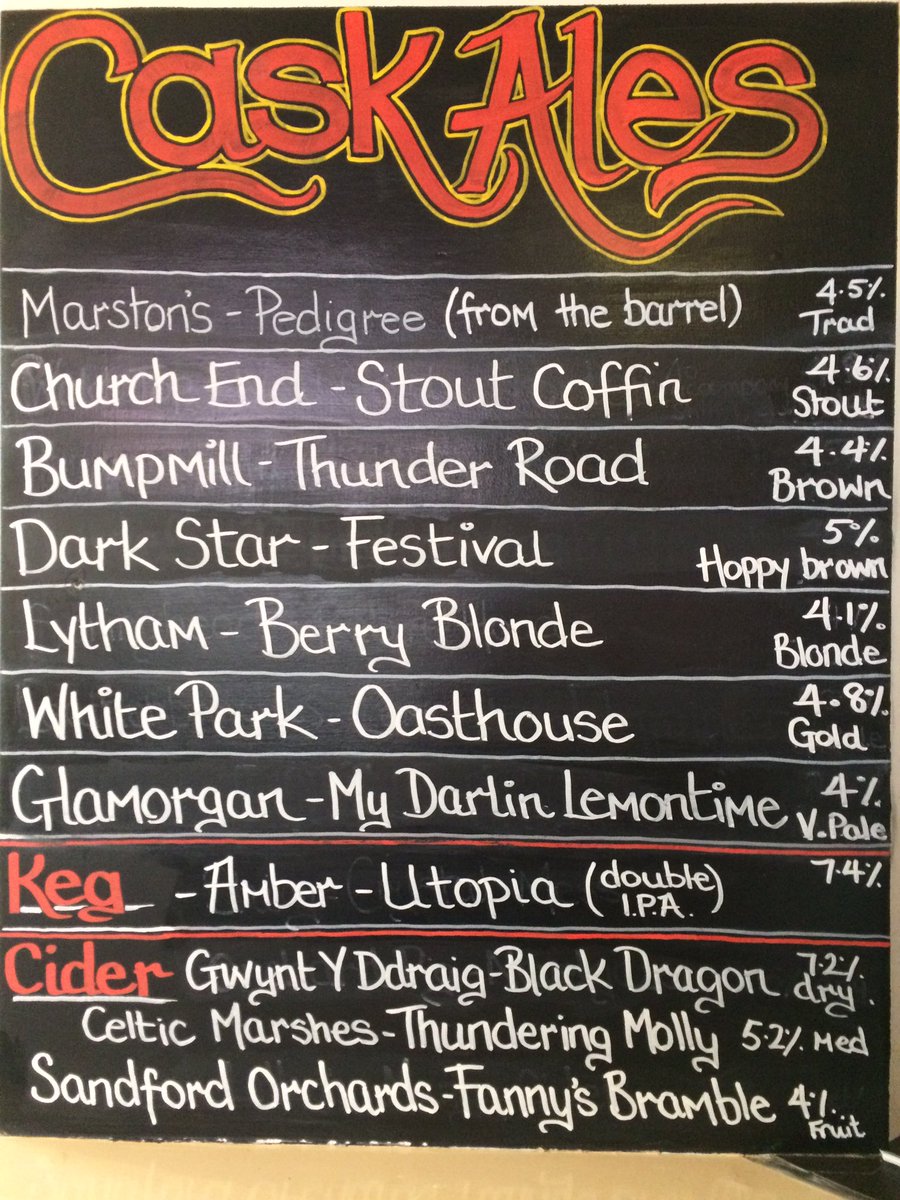 Cask Ales
Marston's - Pedigree (from the barrel) 4.5%
Trad
Church End - Stout Coffin 4.6%
Stout
Bumpmill - Thunder Road 4.4%
Brown
Dark Star - Festival 5%
Hoppy brown
Lytham - Berry Blonde 4.1%
Blonde
White Park - Oasthouse 4.8%
Gold
Glamorgan - My Darlin Lemontime 4%
V. Pale
Keg - Amber - Utopia (double I.P.A.) 7.4%
Cider Gwynt Y Ddraig - Black Dragon 7.2%
dry.
Celtic Marshes - Thundering Molly 5.2% Med
Sandford Orchards - Fanny's Bramble 4%
Fruit